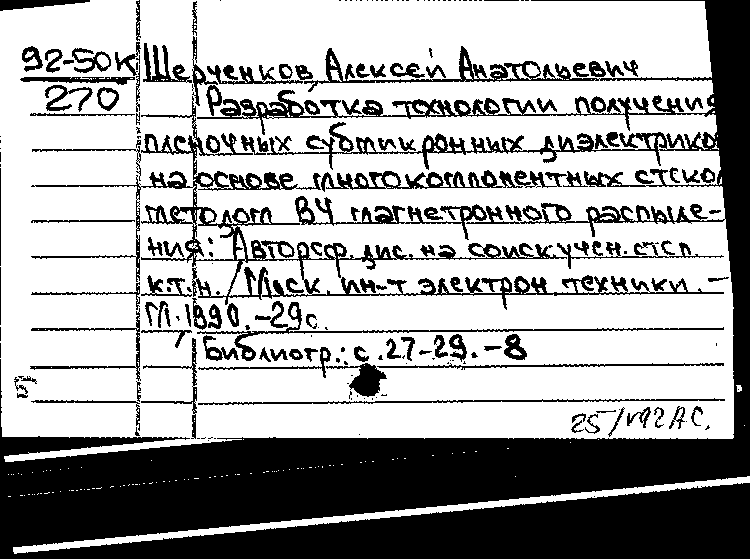 92-50К Шерченков, Алексей Анатольевич
270 Разработка технологии получения
пленочных субмикронных диэлектриков
на основе многокомпонентных стекол
методом ВЧ магнетронного распыле-
ния: Автореф. дис. на соиск. учен. степ.
к.т.н. / Моск. ин-т электрон. техники. -
М. 1990. -29с.
Библиогр.: с. 27-29. -8